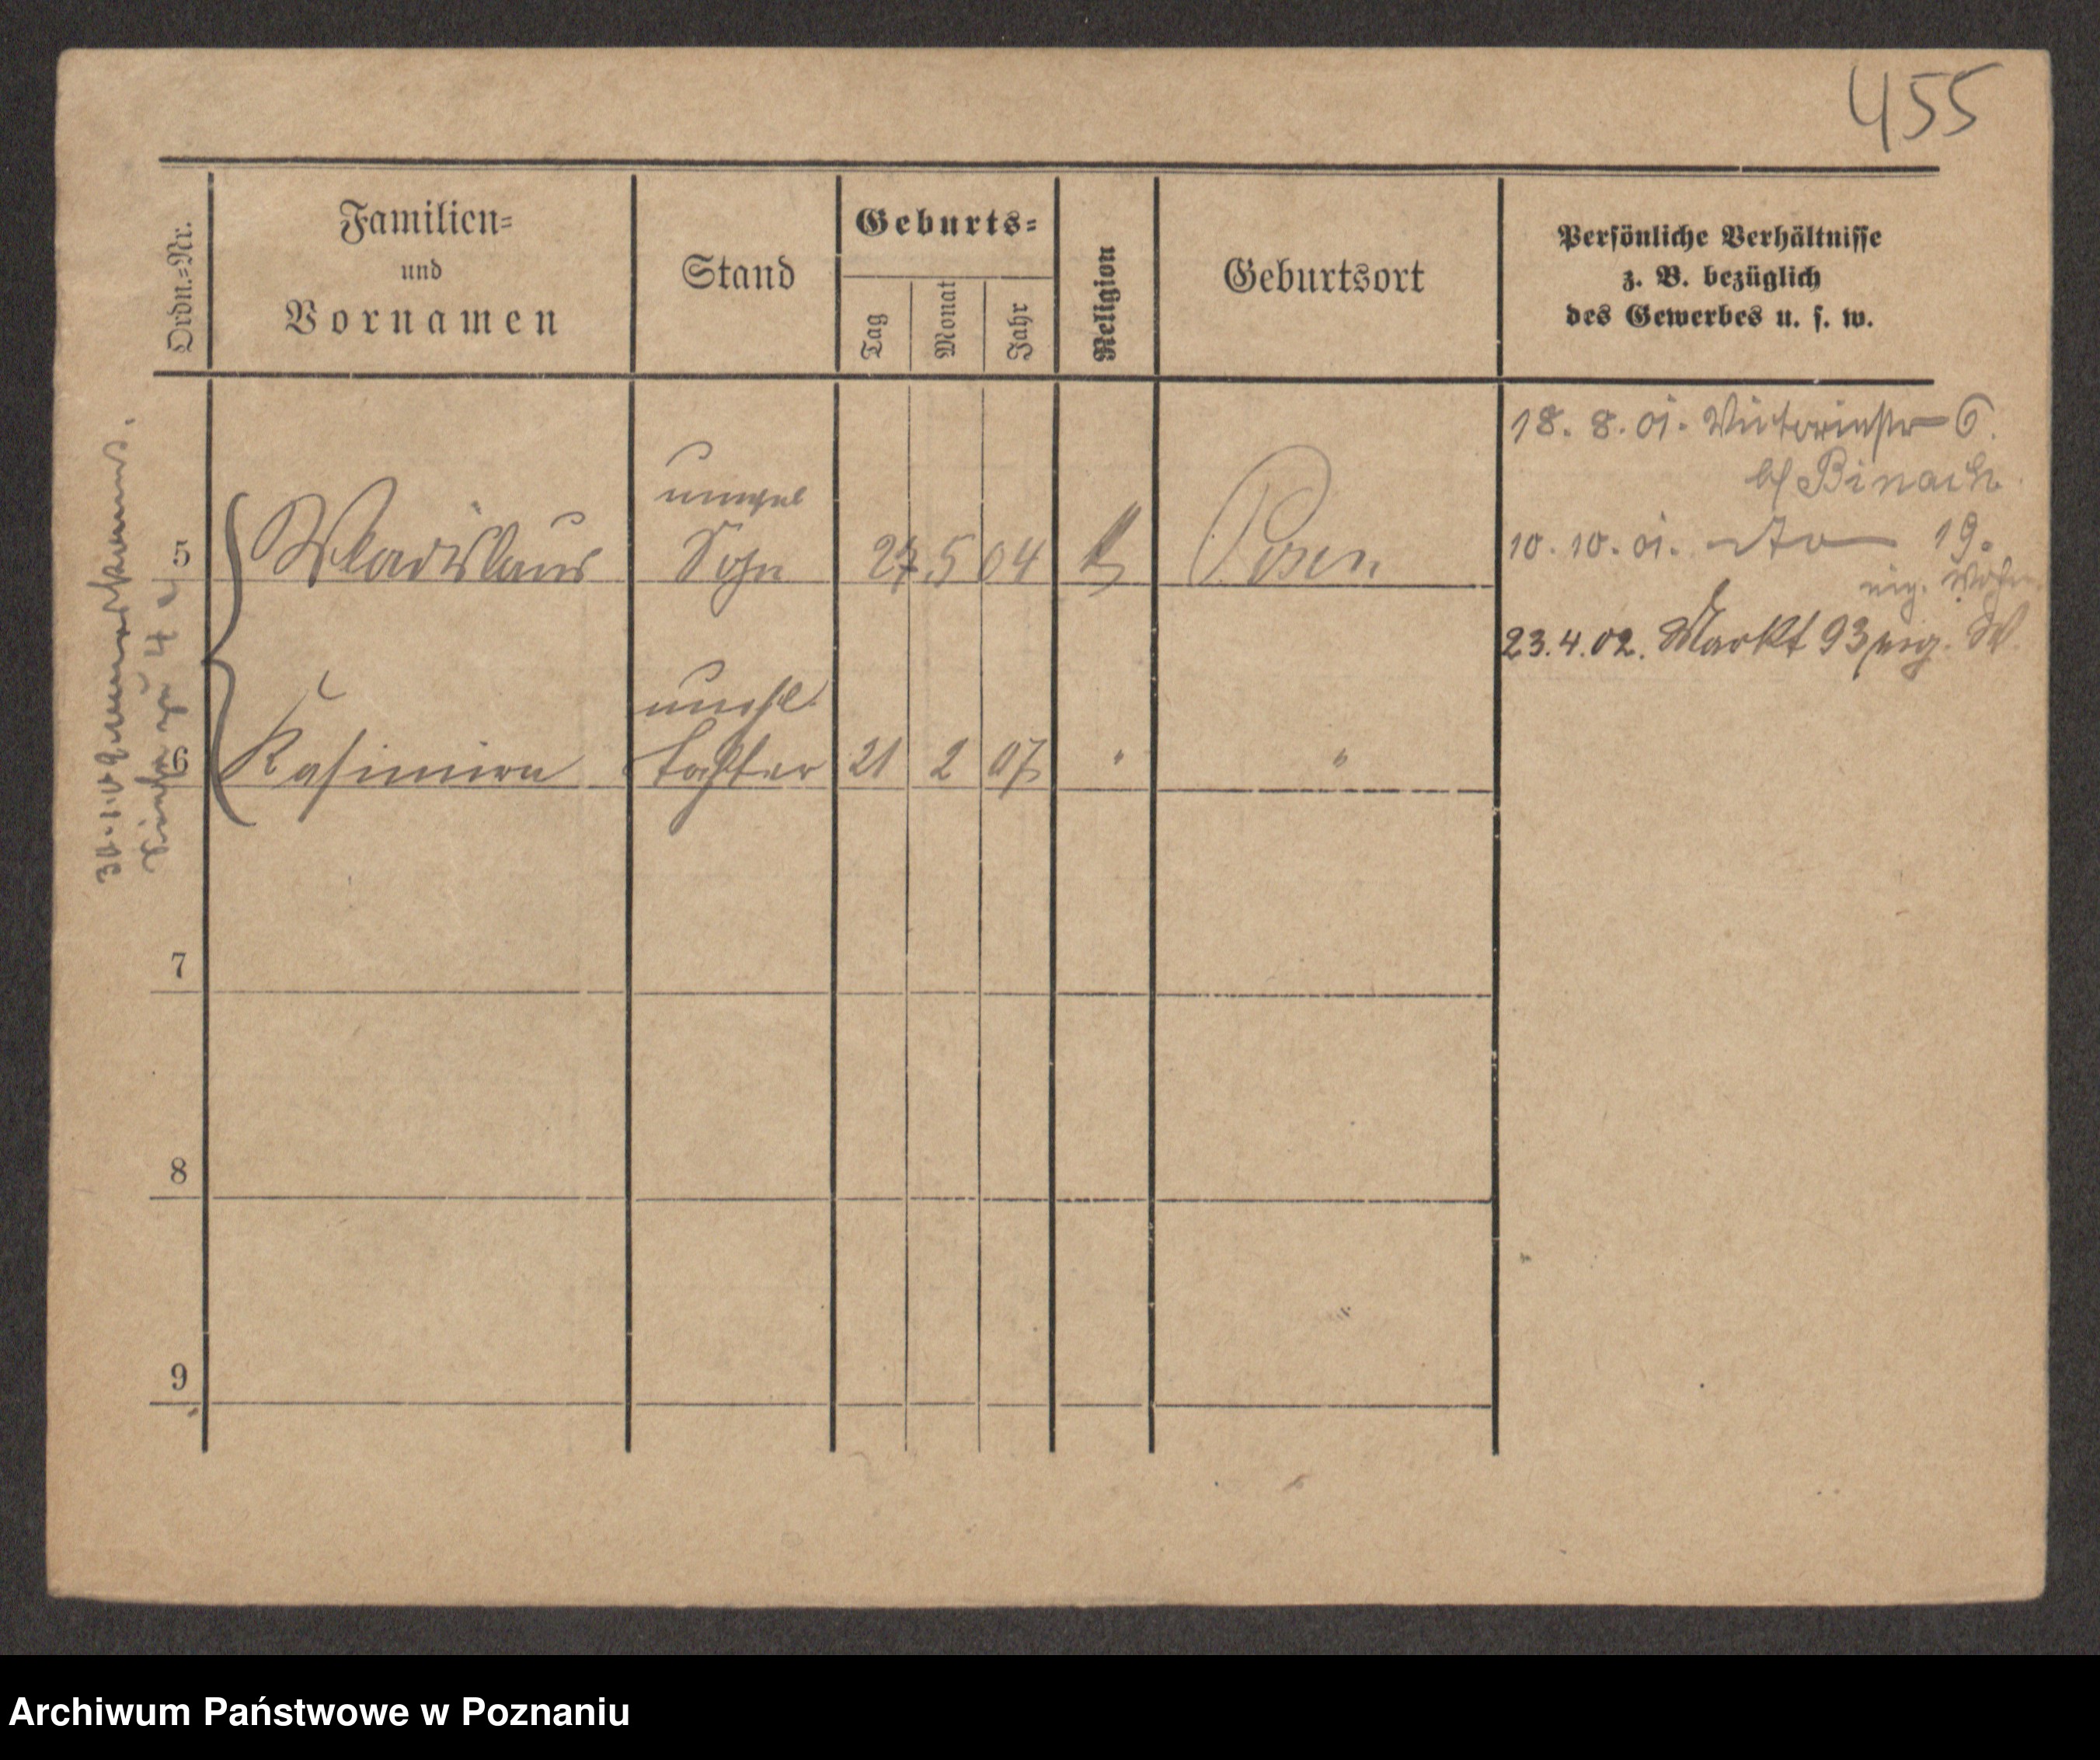 455
Ordn.-Nr.
Familien-
und
Vornamen
Stand
Geburts-
Tag
Monat
Jahr
Religion
Geburtsort
Persönliche Verhältnisse
z. B. bezüglich
des Gewerbes u. s. w.
5 Wladislaus
unehel
Sohn 27 5 04 k Posen
6 Kasimira
unehl.
Tochter 21 2 07 " "
7
8
9
18. 8. 01. Victoriastr 6.
b/
10. 10. 01. do 19.
eig. Wohn
23. 4. 02. Markt 93 eig. W.
30.1.09
zu 4
Archiwum Państwowe w Poznaniu